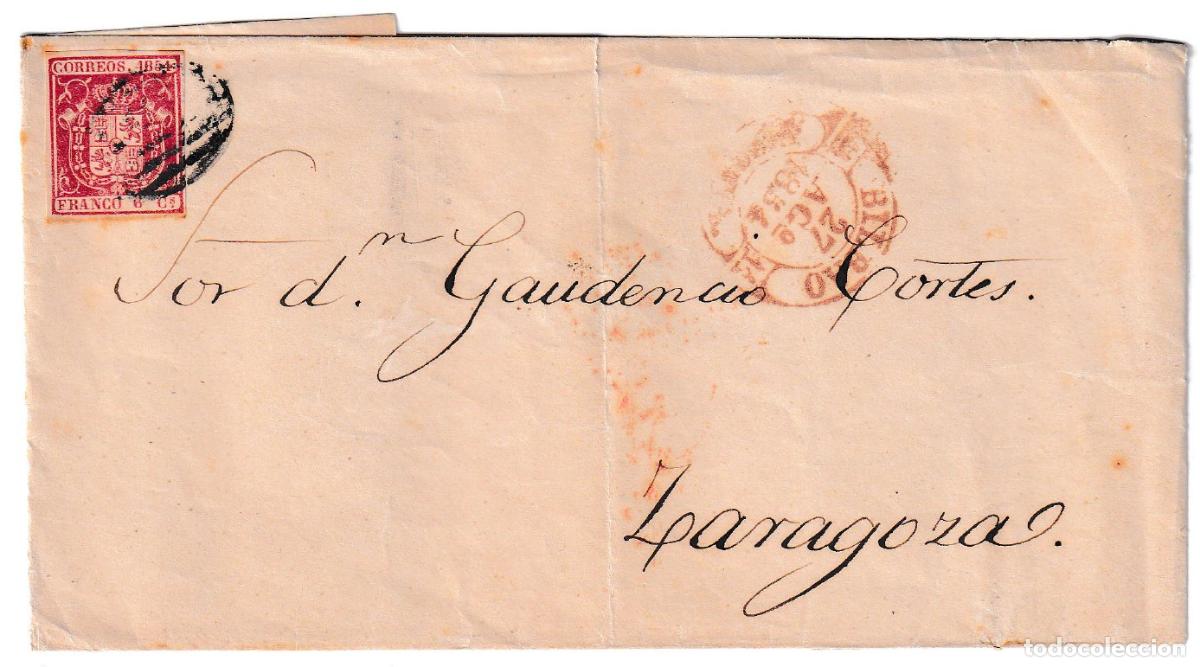 CORREOS. 1854
FRANCO 6 Cs
BILBAO
27
AGO
1854
Sor dn. Gaudencio Cortes.
Zaragoza.
todocoleccion